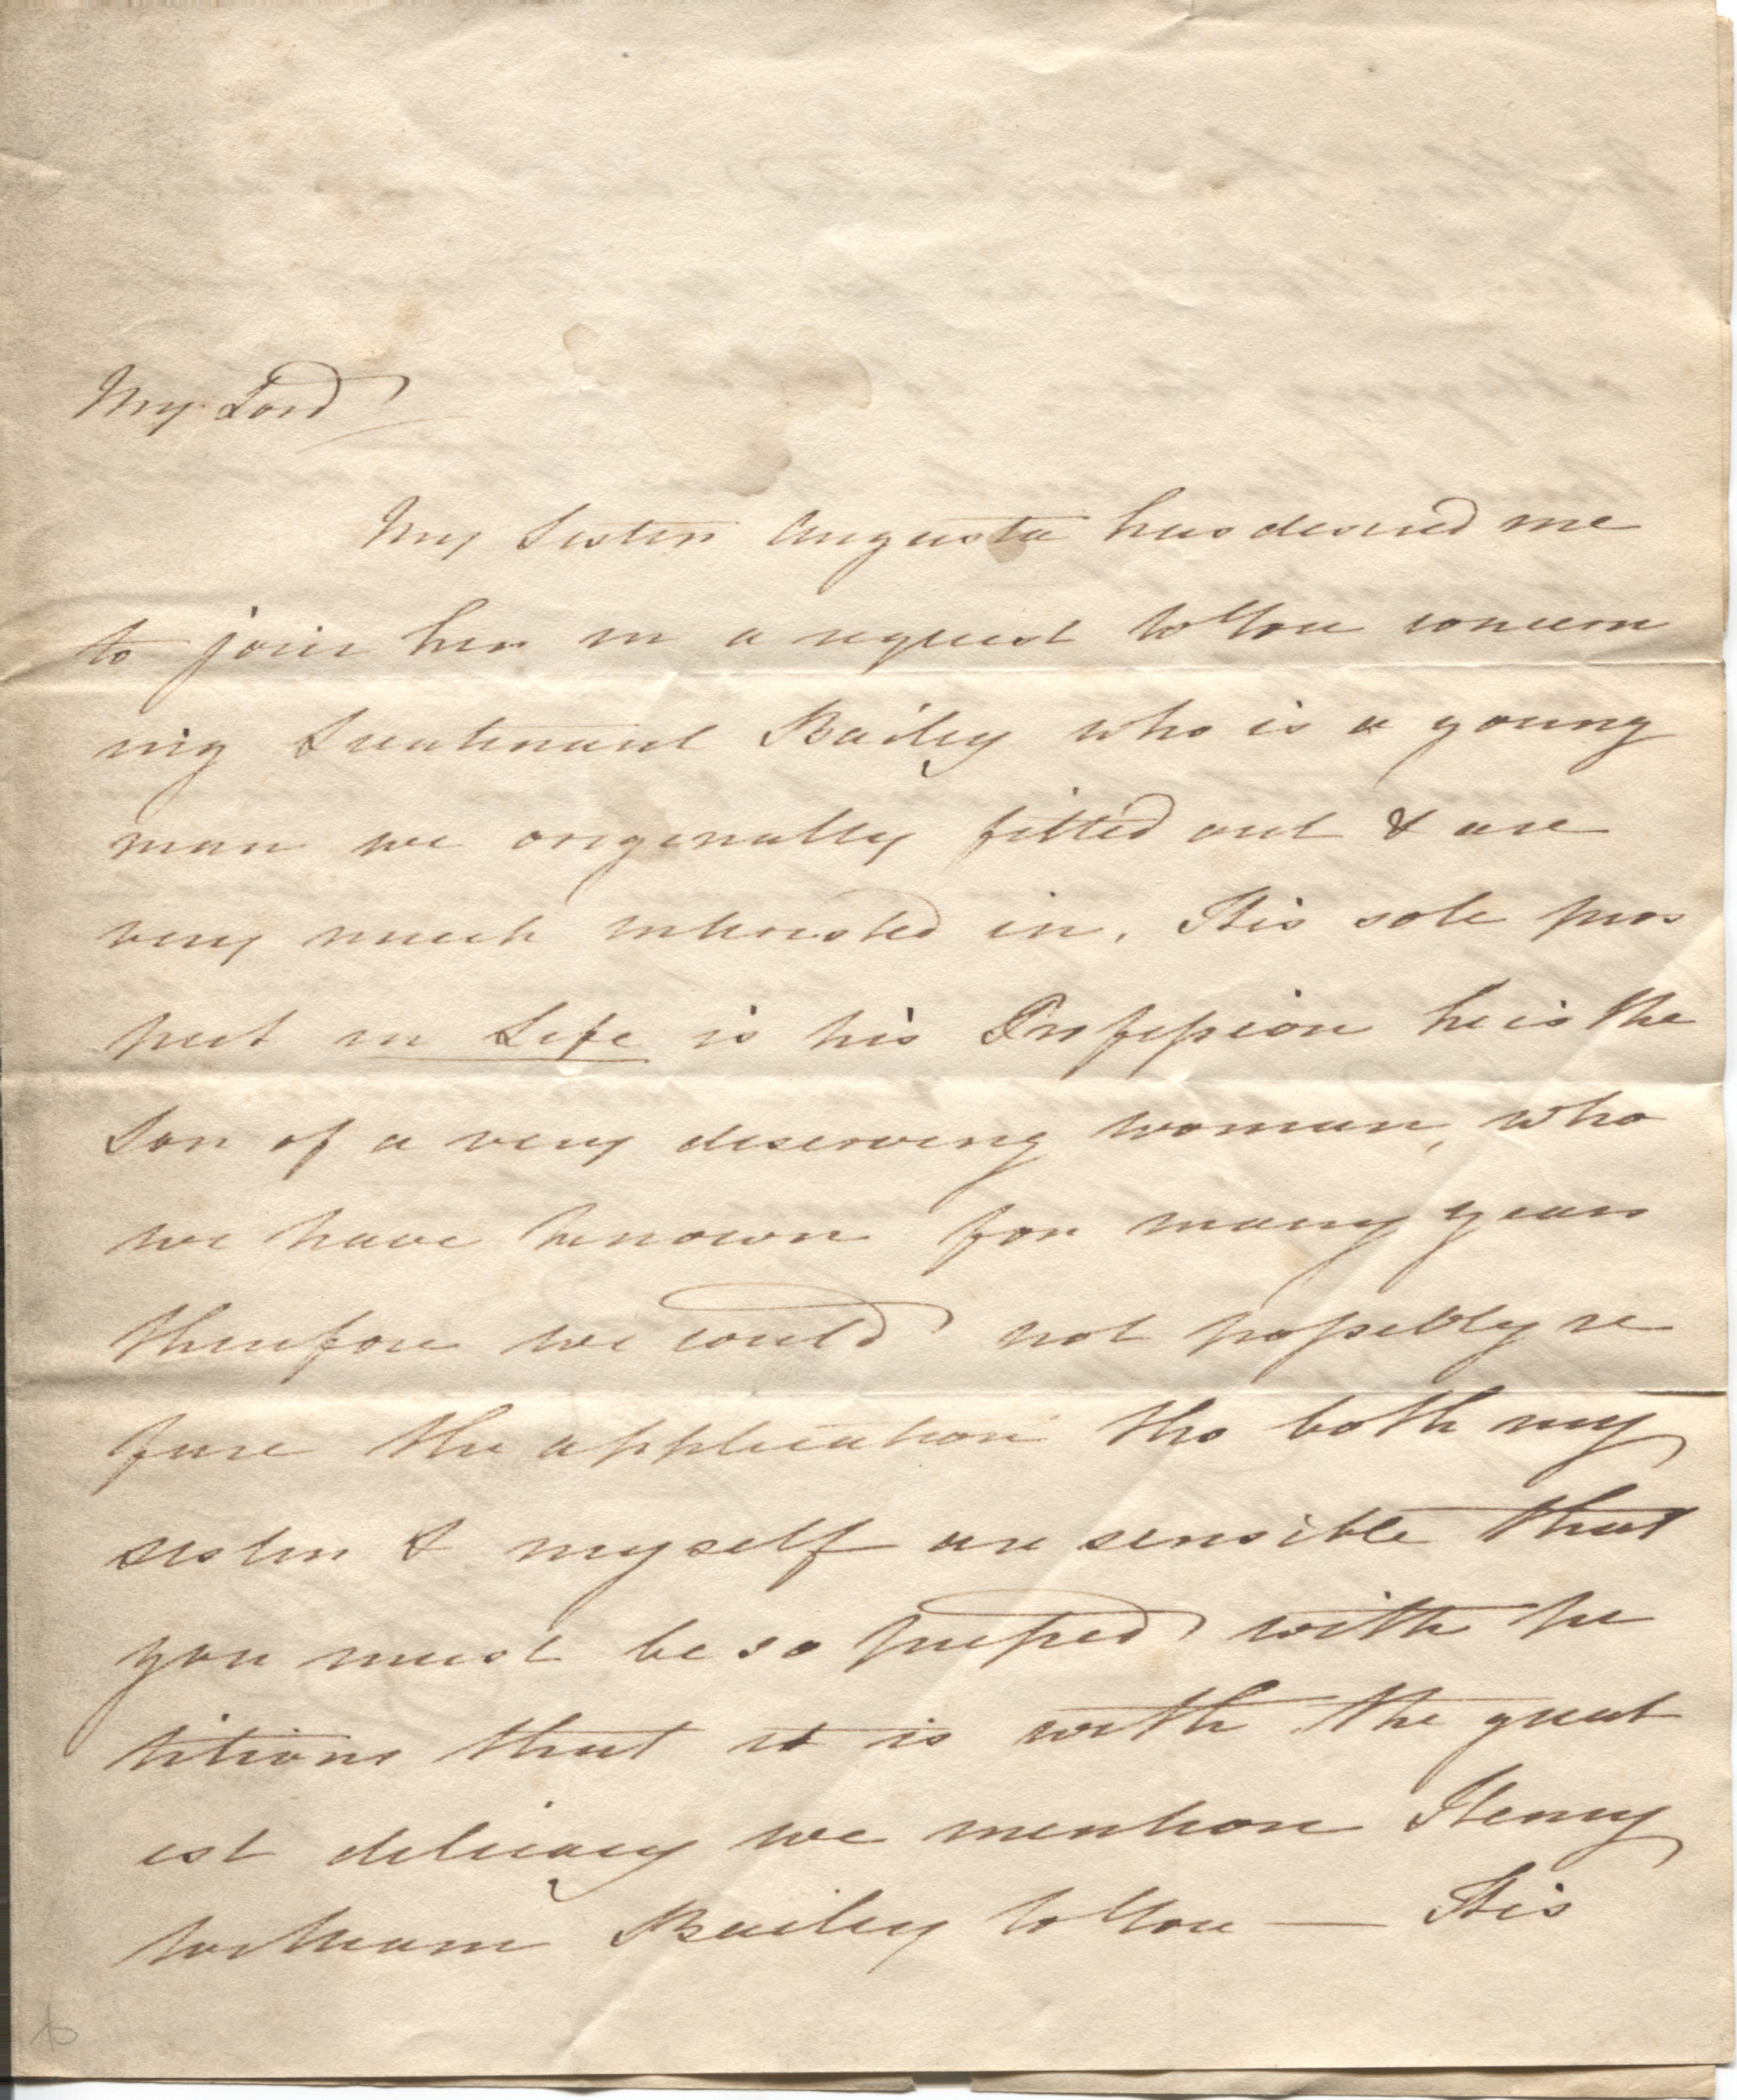 My Lord
My Sister Augusta has desired me
to join her in a request to You concern
ing Lieutenant Bailey who is a young
man we originally fitted out & are
very much interested in. His sole pros
pect in Life is his Profession he is the
Son of a very deserving woman, who
we have known for many years
therefore we could not possibly re
fuse the application tho both my
sister & myself are sensible that
you must be so pressed with pe
titions that it is with the great
est delicacy we mention Henry
William Bailey to You — His